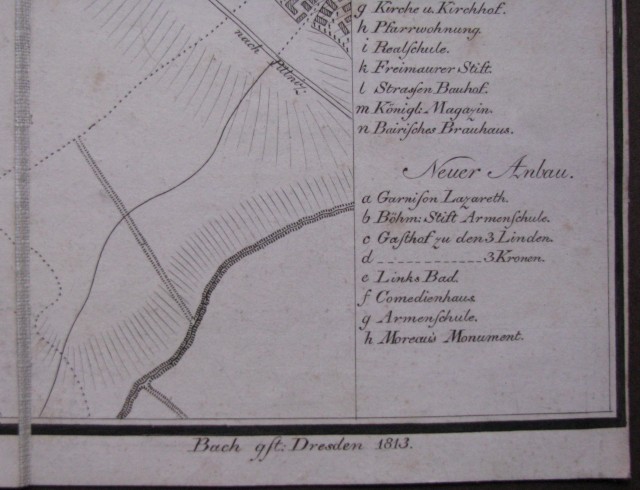 g Kirche u. Kirchhof.
h Pfarrwohnung.
i Realſchule.
k Freimaurer Stift.
l Straſſen Bauhof.
m Königl: Magazin.
n Bairiſches Brauhaus.
nach Pilnitz.
Neuer Anbau.
a Garniſon Lazareth.
b Böhm: Stift Armenſchule.
c Gaſthof zu den 3 Linden.
d _ _ _ _ _ _ _ _ _ _ 3 Kronen.
e Links Bad.
f Comedienhaus.
g Armenſchule.
h Moreau's Monument.
Bach gſt: Dresden 1813.